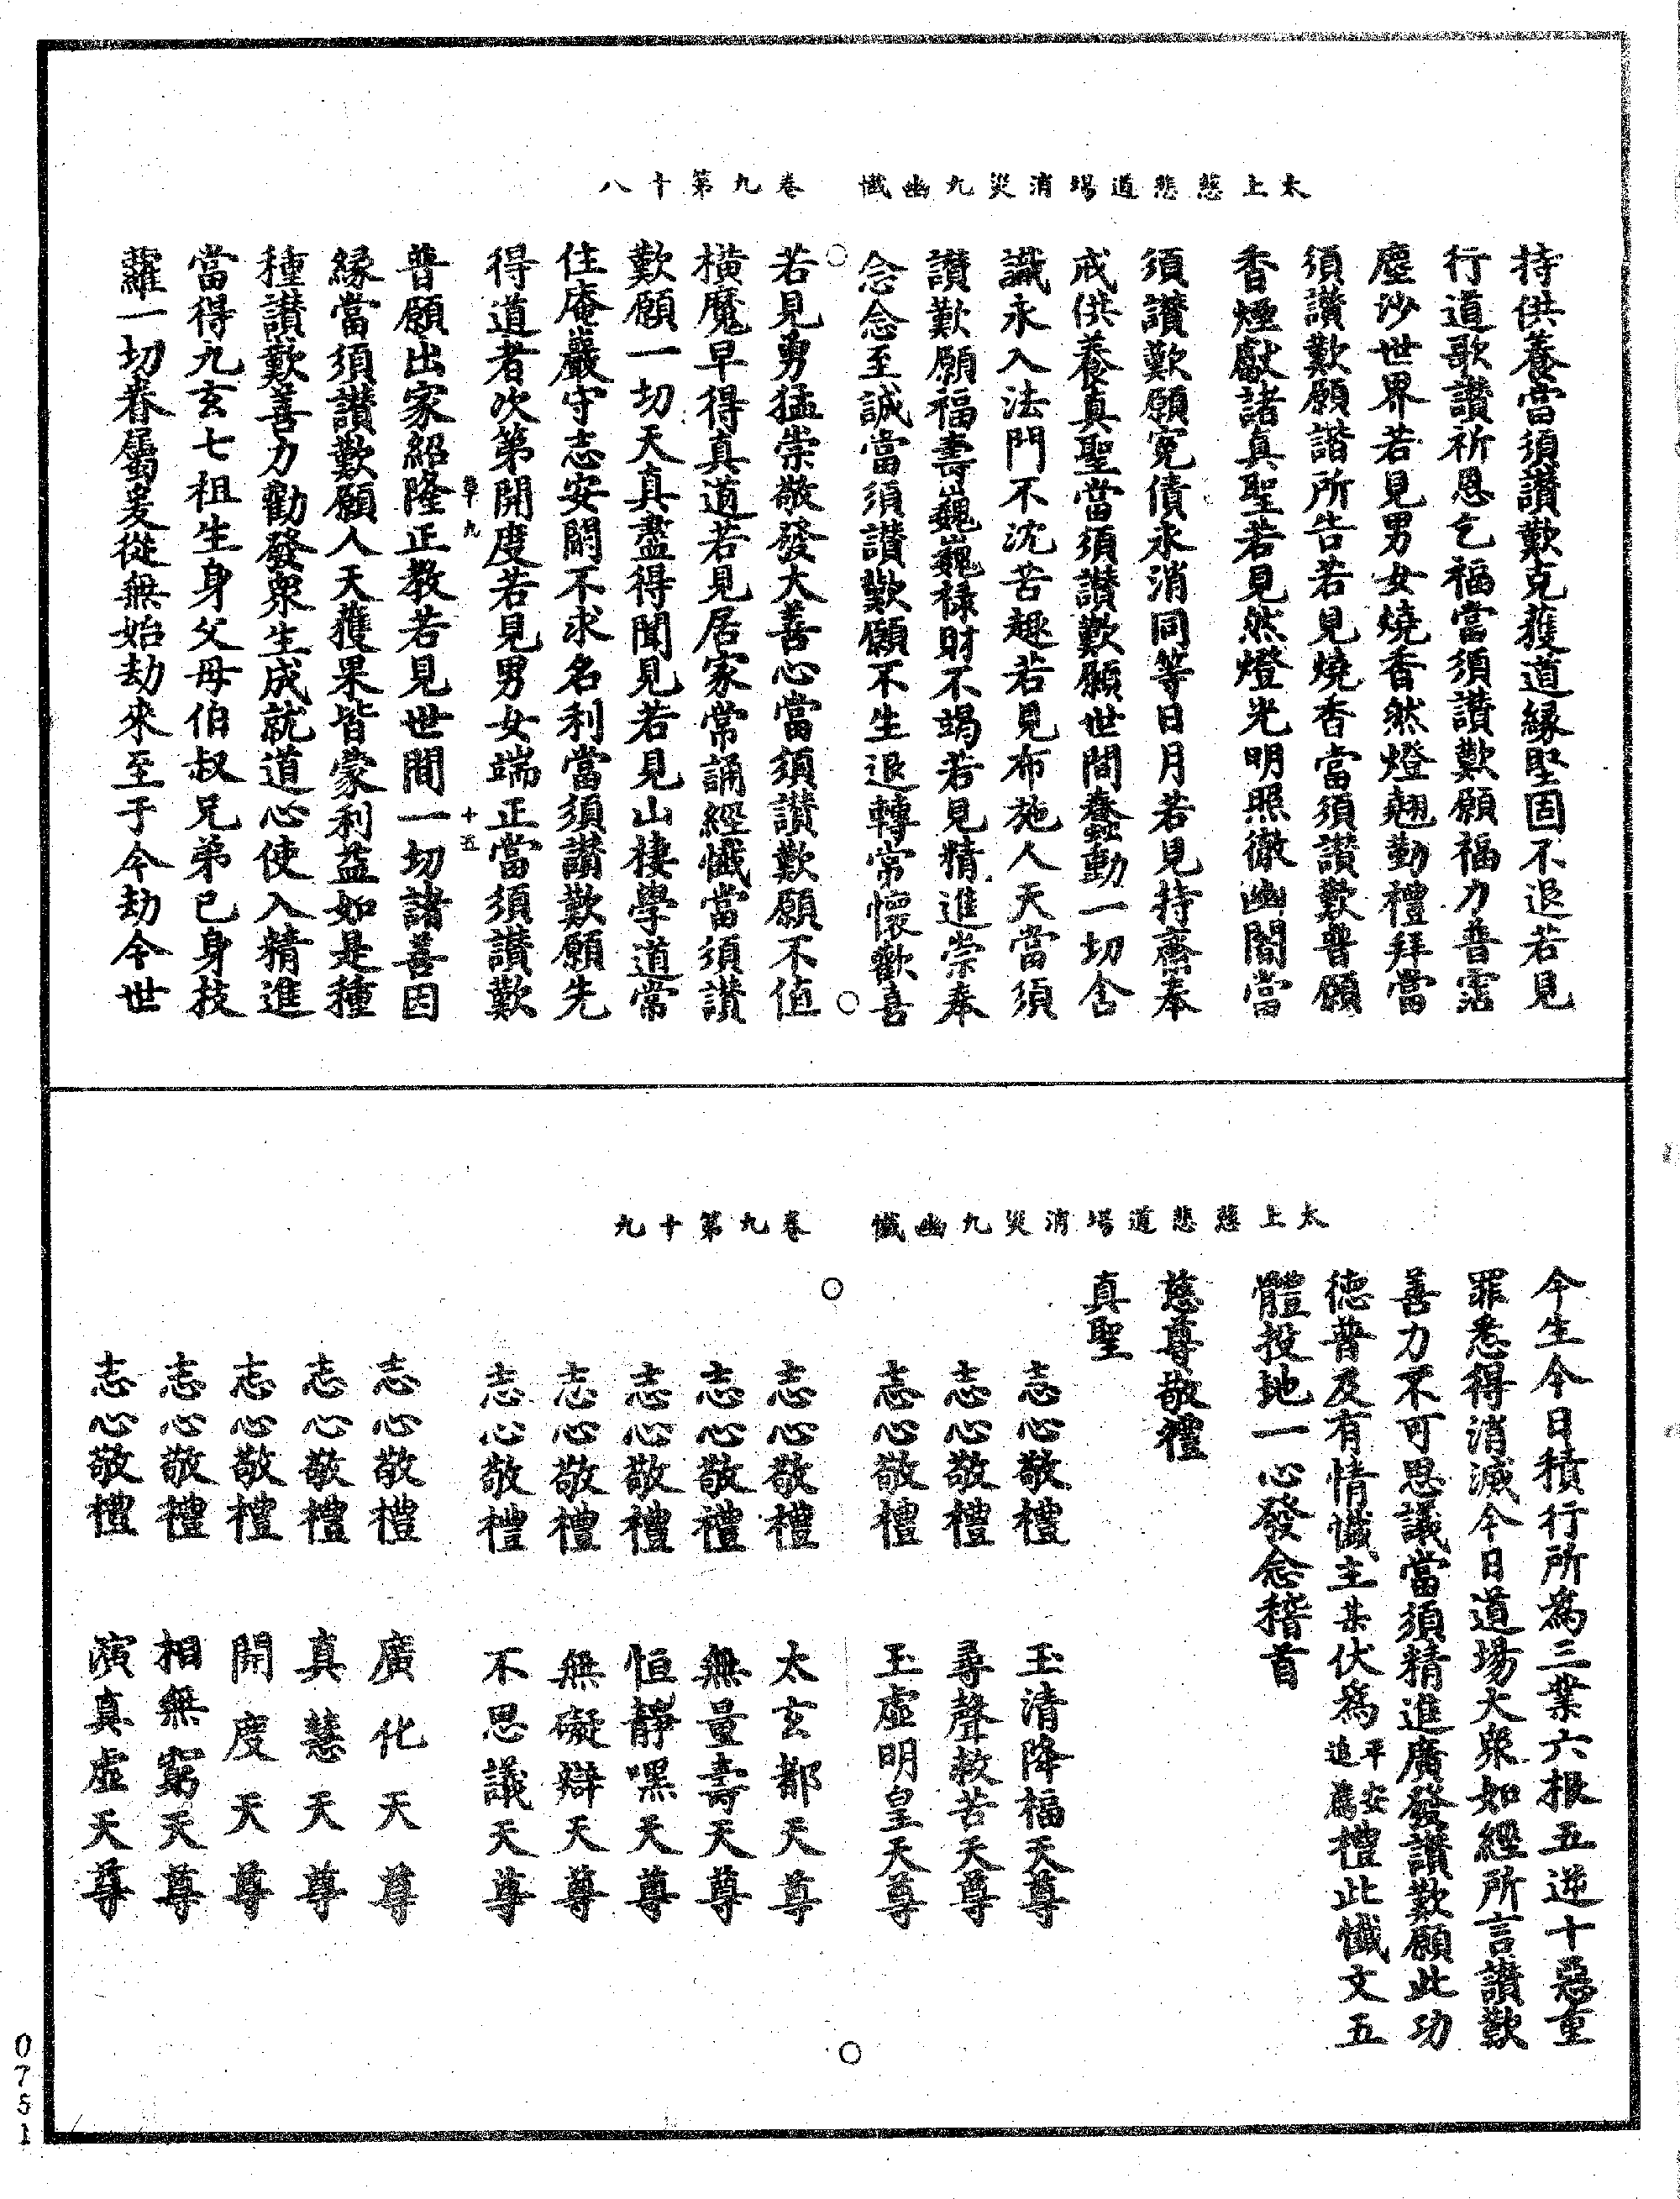 太上慈悲道場消災九幽懺　卷九第十八
持供養當須讚歎克獲道縁堅固不退若見
行道歌讚祈恩乞福當須讚歎願福力普霑
塵沙世界若見男女燒香然燈翹勤禮拜當
須讚歎願諧所告若見燒香當須讚歎普願
香煙獻諸真聖若見然燈光明照徹幽闇當
須讚歎願寃債永消同等日月若見持齋奉
戒供養真聖當須讚歎願世間蠢動一切含
識永入法門不沈苦趣若見布施人天當須
讚歎願福壽巍巍祿財不竭若見精進崇奉
念念至誠當須讚歎願不生退轉常懷歡喜
若見勇猛崇敬發大善心當須讚歎願不值
橫魔早得真道若見居家常誦經懺當須讚
歎願一切天真盡得聞見若見山棲學道常
住庵巖守志安閑不求名利當須讚歎願先
得道者次第開度若見男女端正當須讚歎
十五
普願出家紹隆正教若見世間一切諸善因
緣當須讚歎願人天獲果皆蒙利益如是種
種讚歎善力勸發衆生成就道心使入精進
當得九玄七祖生身父母伯叔兄弟已身技
蘿一切眷屬爰從無始劫來至于今劫今世
太上慈悲道場消災九幽懺　卷九第十九
今生今日積行所為三業六根五逆十惡重
罪悉得消滅今日道場大衆如經所言讚歎
善力不可思議當須精進廣發讚歎願此功
德普及有情懺主某伏為平安追薦禮此懺文五
體投地一心發念稽首
慈尊敬禮
真聖
志心敬禮　玉清降福天尊
志心敬禮　尋聲救苦天尊
志心敬禮　玉虛明皇天尊
志心敬禮　太玄都天尊
志心敬禮　無量壽天尊
志心敬禮　恒靜嘿天尊
志心敬禮　無礙辯天尊
志心敬禮　不思議天尊
志心敬禮　廣化天尊
志心敬禮　真慧天尊
志心敬禮　開度天尊
志心敬禮　相無窮天尊
志心敬禮　演真虛天尊
0751